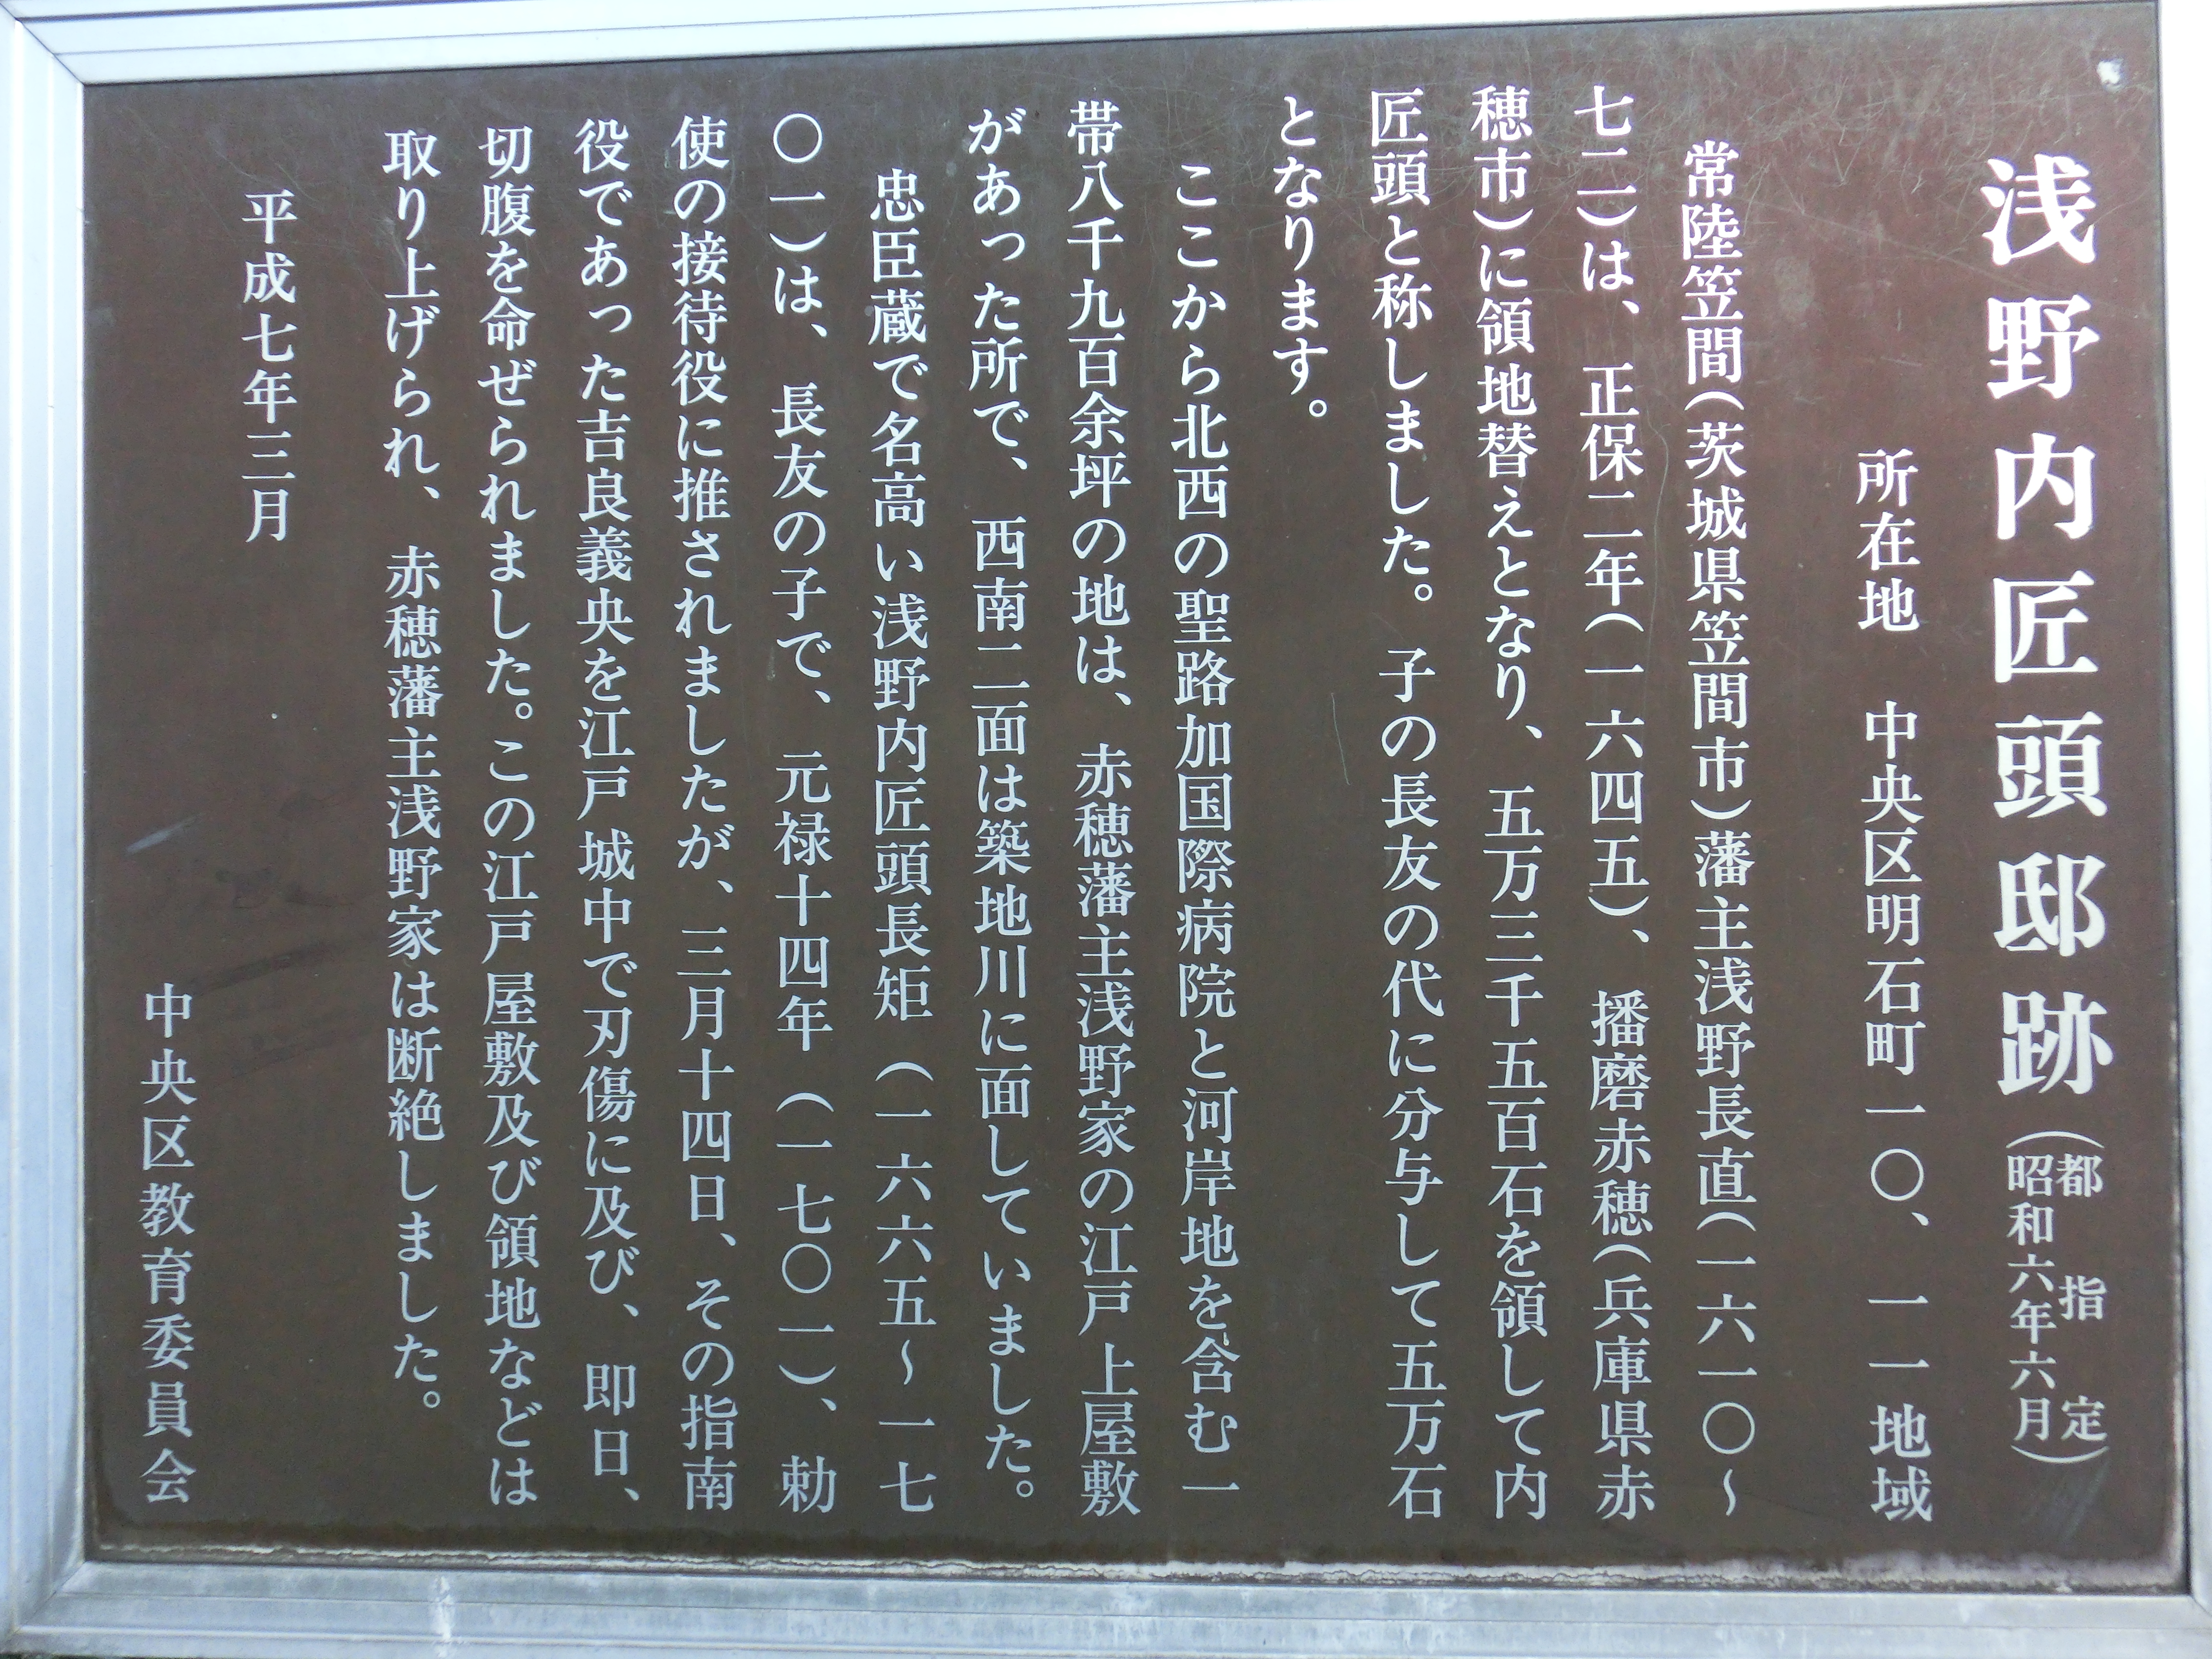 浅野内匠頭邸跡（都指定 昭和六年六月）
所在地　中央区明石町一〇、一一地域
常陸笠間（茨城県笠間市）藩主浅野長直（一六一〇～
七二）は、正保二年（一六四五）、播磨赤穂（兵庫県赤
穂市）に領地替えとなり、五万三千五百石を領して内
匠頭と称しました。子の長友の代に分与して五万石
となります。
ここから北西の聖路加国際病院と河岸地を含む一
帯八千九百余坪の地は、赤穂藩主浅野家の江戸上屋敷
があった所で、西南二面は築地川に面していました。
忠臣蔵で名高い浅野内匠頭長矩（一六六五～一七
〇一）は、長友の子で、元禄十四年（一七〇一）、勅
使の接待役に推されましたが、三月十四日、その指南
役であった吉良義央を江戸城中で刃傷に及び、即日、
切腹を命ぜられました。この江戸屋敷及び領地などは
取り上げられ、赤穂藩主浅野家は断絶しました。
平成七年三月
中央区教育委員会